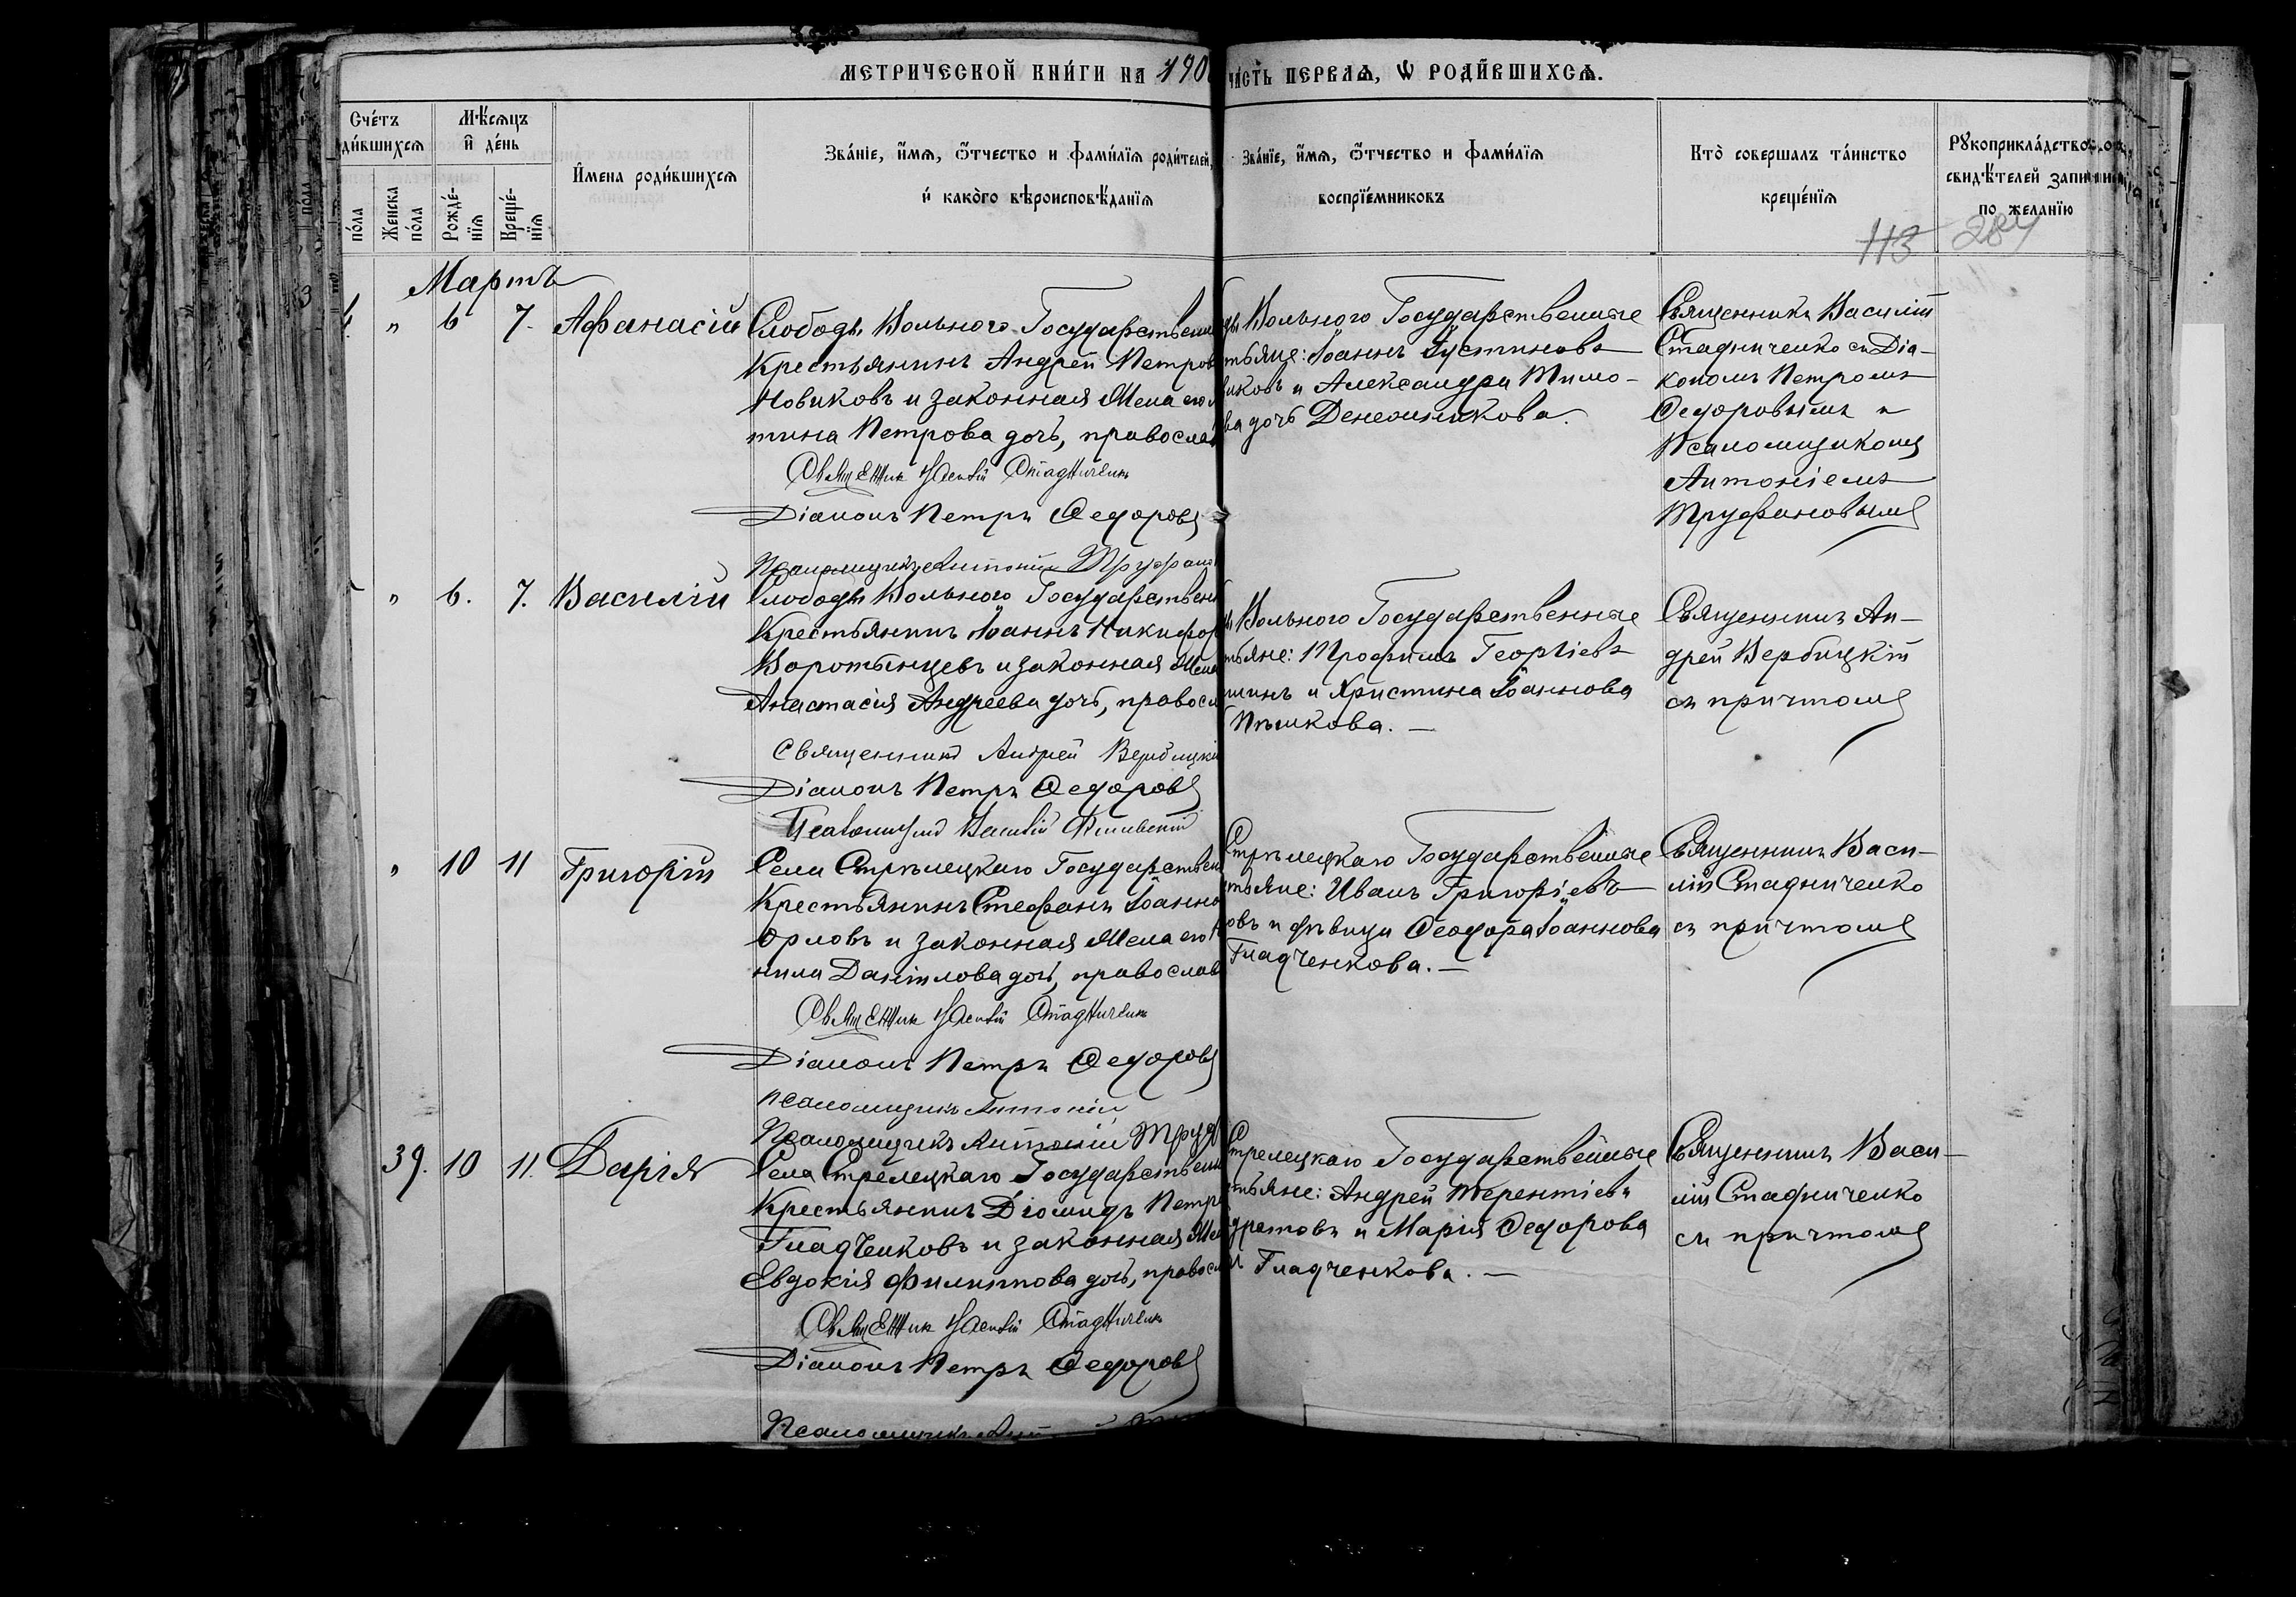 МЕТРИЧЕСКОЙ КНИ́ГИ НА 190
ЧА́СТЬ ПЕРВАѦ, Ѡ РОДИ́ВШИХСѦ.
Сче́тъ
ди́вшихсѧ
Мѣ́сѧцъ
и҆ де́нь
И҆мена роди́вшихсѧ
Зва́нїе, и҆́мѧ, ѻ҆́тчество и фами́лїѧ роди́телей,
и҆ како́го вѣроисповѣ́данїѧ
Зва́нїе, и҆́мѧ, ѻ҆́тчество и фами́лїѧ
воспрїе́мниковъ
Кто̀ совершалъ та́инство
креще́нїѧ
Рꙋкоприкла́дство
свидѣ́телей
по желанїю
по́ла
Же́нска
по́ла
Рожде́-
нїѧ
Креще́-
нїѧ
113 284
Мартъ
" 6 7. Афанасій
Слободы Вольного Государствен
Крестьянинъ Андрей Петров
Новиковъ и законная Жена его
тина Петрова дочь, правосла
Священник Василій Стадниченк
Діаконъ Петръ Федоровъ
Псаломщикъ Антоній Труфан
Вольного Государственные
тьяне: Іоаннъ Іустиновъ
иковъ и Александра Тимо-
ва дочь Денежникова.
Священникъ Василій
Стадниченко съ Діа-
кономъ Петромъ
Федоровымъ и
Псаломщикомъ
Антоніемъ
Труфановымъ
" 6. 7. Василій
Слободы Вольного Государствен
Крестьянинъ Іоаннъ Никифор
Воротынцевъ и законная Жена
Анастасія Андреева дочь, правосл
Священникъ Андрей Вербицкі
Діаконъ Петръ Федоровъ
Псаломщикъ Василій
Вольного Государственные
тьяне: Трофимъ Георгіевъ
шинъ и Христина Іоаннова
Пѣшкова. —
Священникъ Ан-
дрей Вербицкій
съ причтомъ
" 10 11 Григорій
Села Стрѣлецкаго Государствен
Крестьянинъ Стефанъ Іоанно
Орловъ и законная Жена его
нила Даніилова дочь, православ
Священник Василій Стадниченк
Діаконъ Петръ Федоровъ
псаломщикъ Антоній
Псаломщикъ Антоній Труф
Стрѣлецкаго Государственные
стьяне: Иванъ Григоріевъ
овъ и дѣвица Феодора Іоаннова
Гладченкова. —
Священникъ Васи-
лій Стадниченко
съ причтомъ
39. 10 11. Дарія
Села Стрелецкаго Государствен
Крестьянинъ Діомидъ Петр
Гладченковъ и законная Же
Евдокія Филиппова дочь, правосл
Священник Василій Стадниченк
Діаконъ Петръ Федоровъ
Псаломщикъ Ант
Стрелецкаго Государственные
стьяне: Андрей Терентіевъ
дратовъ и Марія Федорова
Гладченкова. —
Священникъ Васи-
лій Стадниченко
съ причтомъ